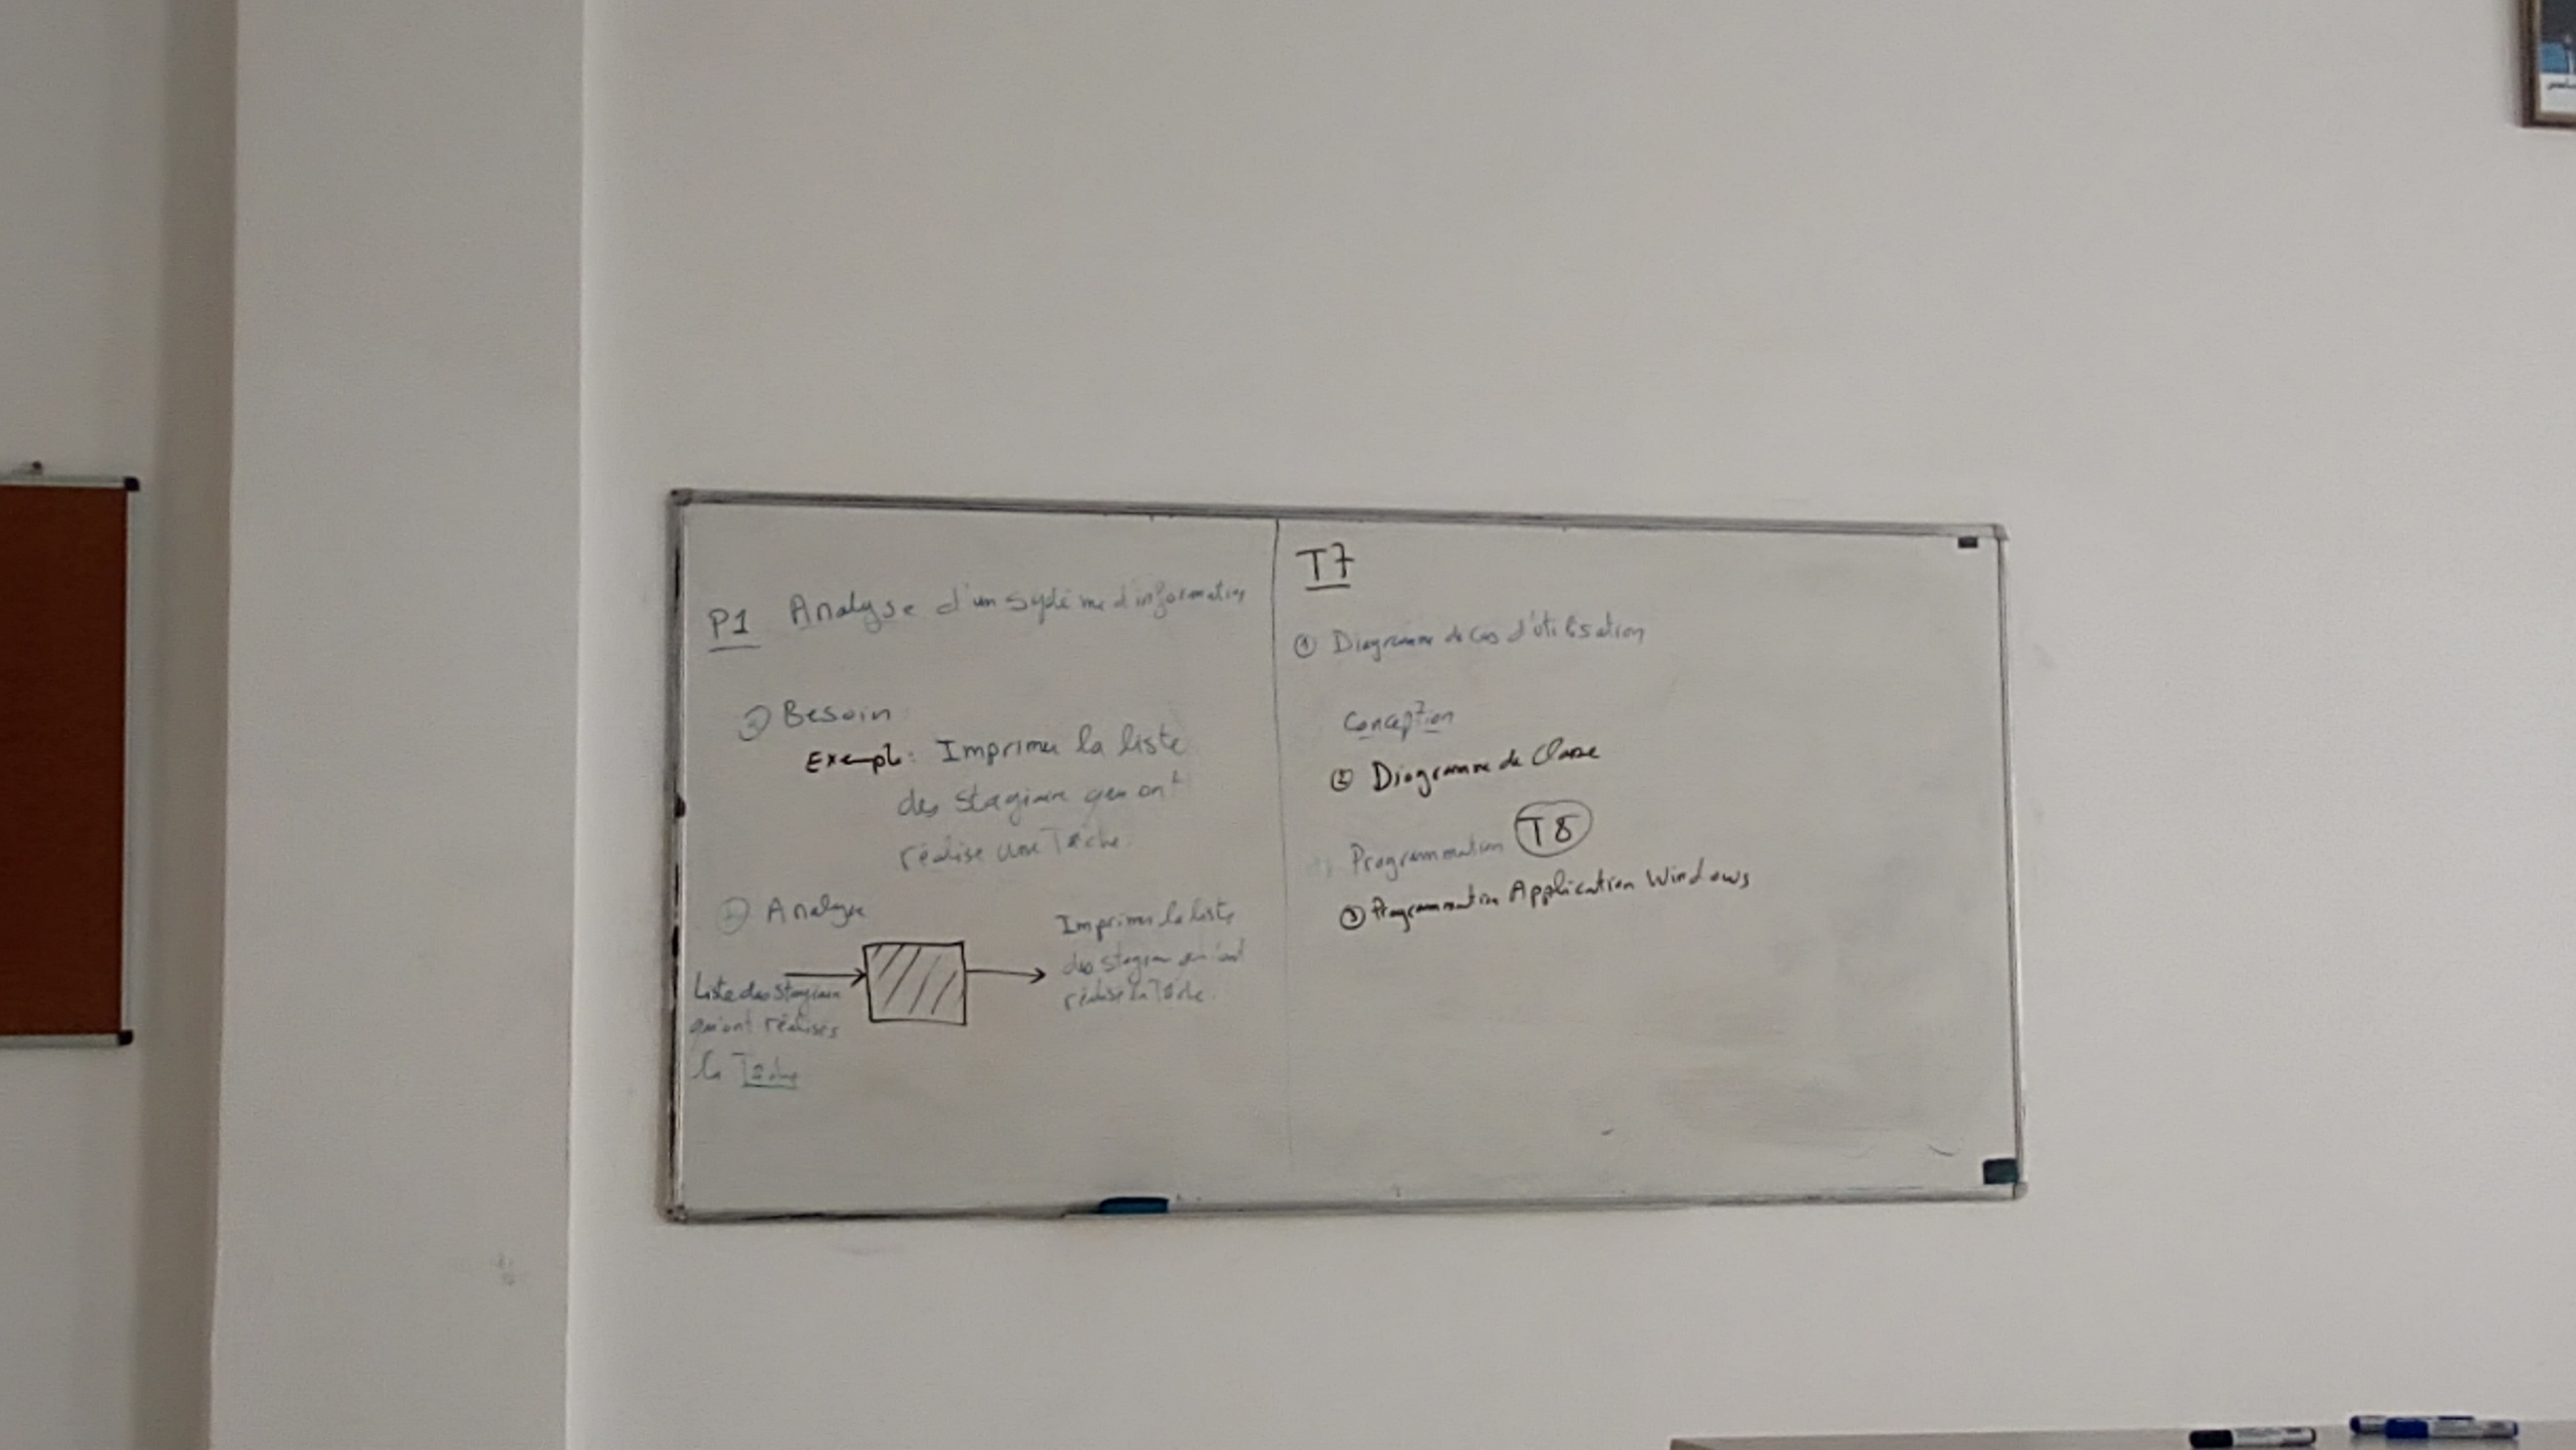 P1 Analyse d'un système d'information
a) Besoin
Exempl: Imprimer la liste
des stagiaire qui ont
réalise une Tâche.
b) Analyse
Liste des stagiaire
qui ont réalisés
la Tâche
Imprimer la liste
des stagiaire qui ont
réalisé la Tâche.
T7
① Diagramme de cas d'utilisation
Conception
② Diagramme de Classe
Programmation T8
③ Programmation Application Windows